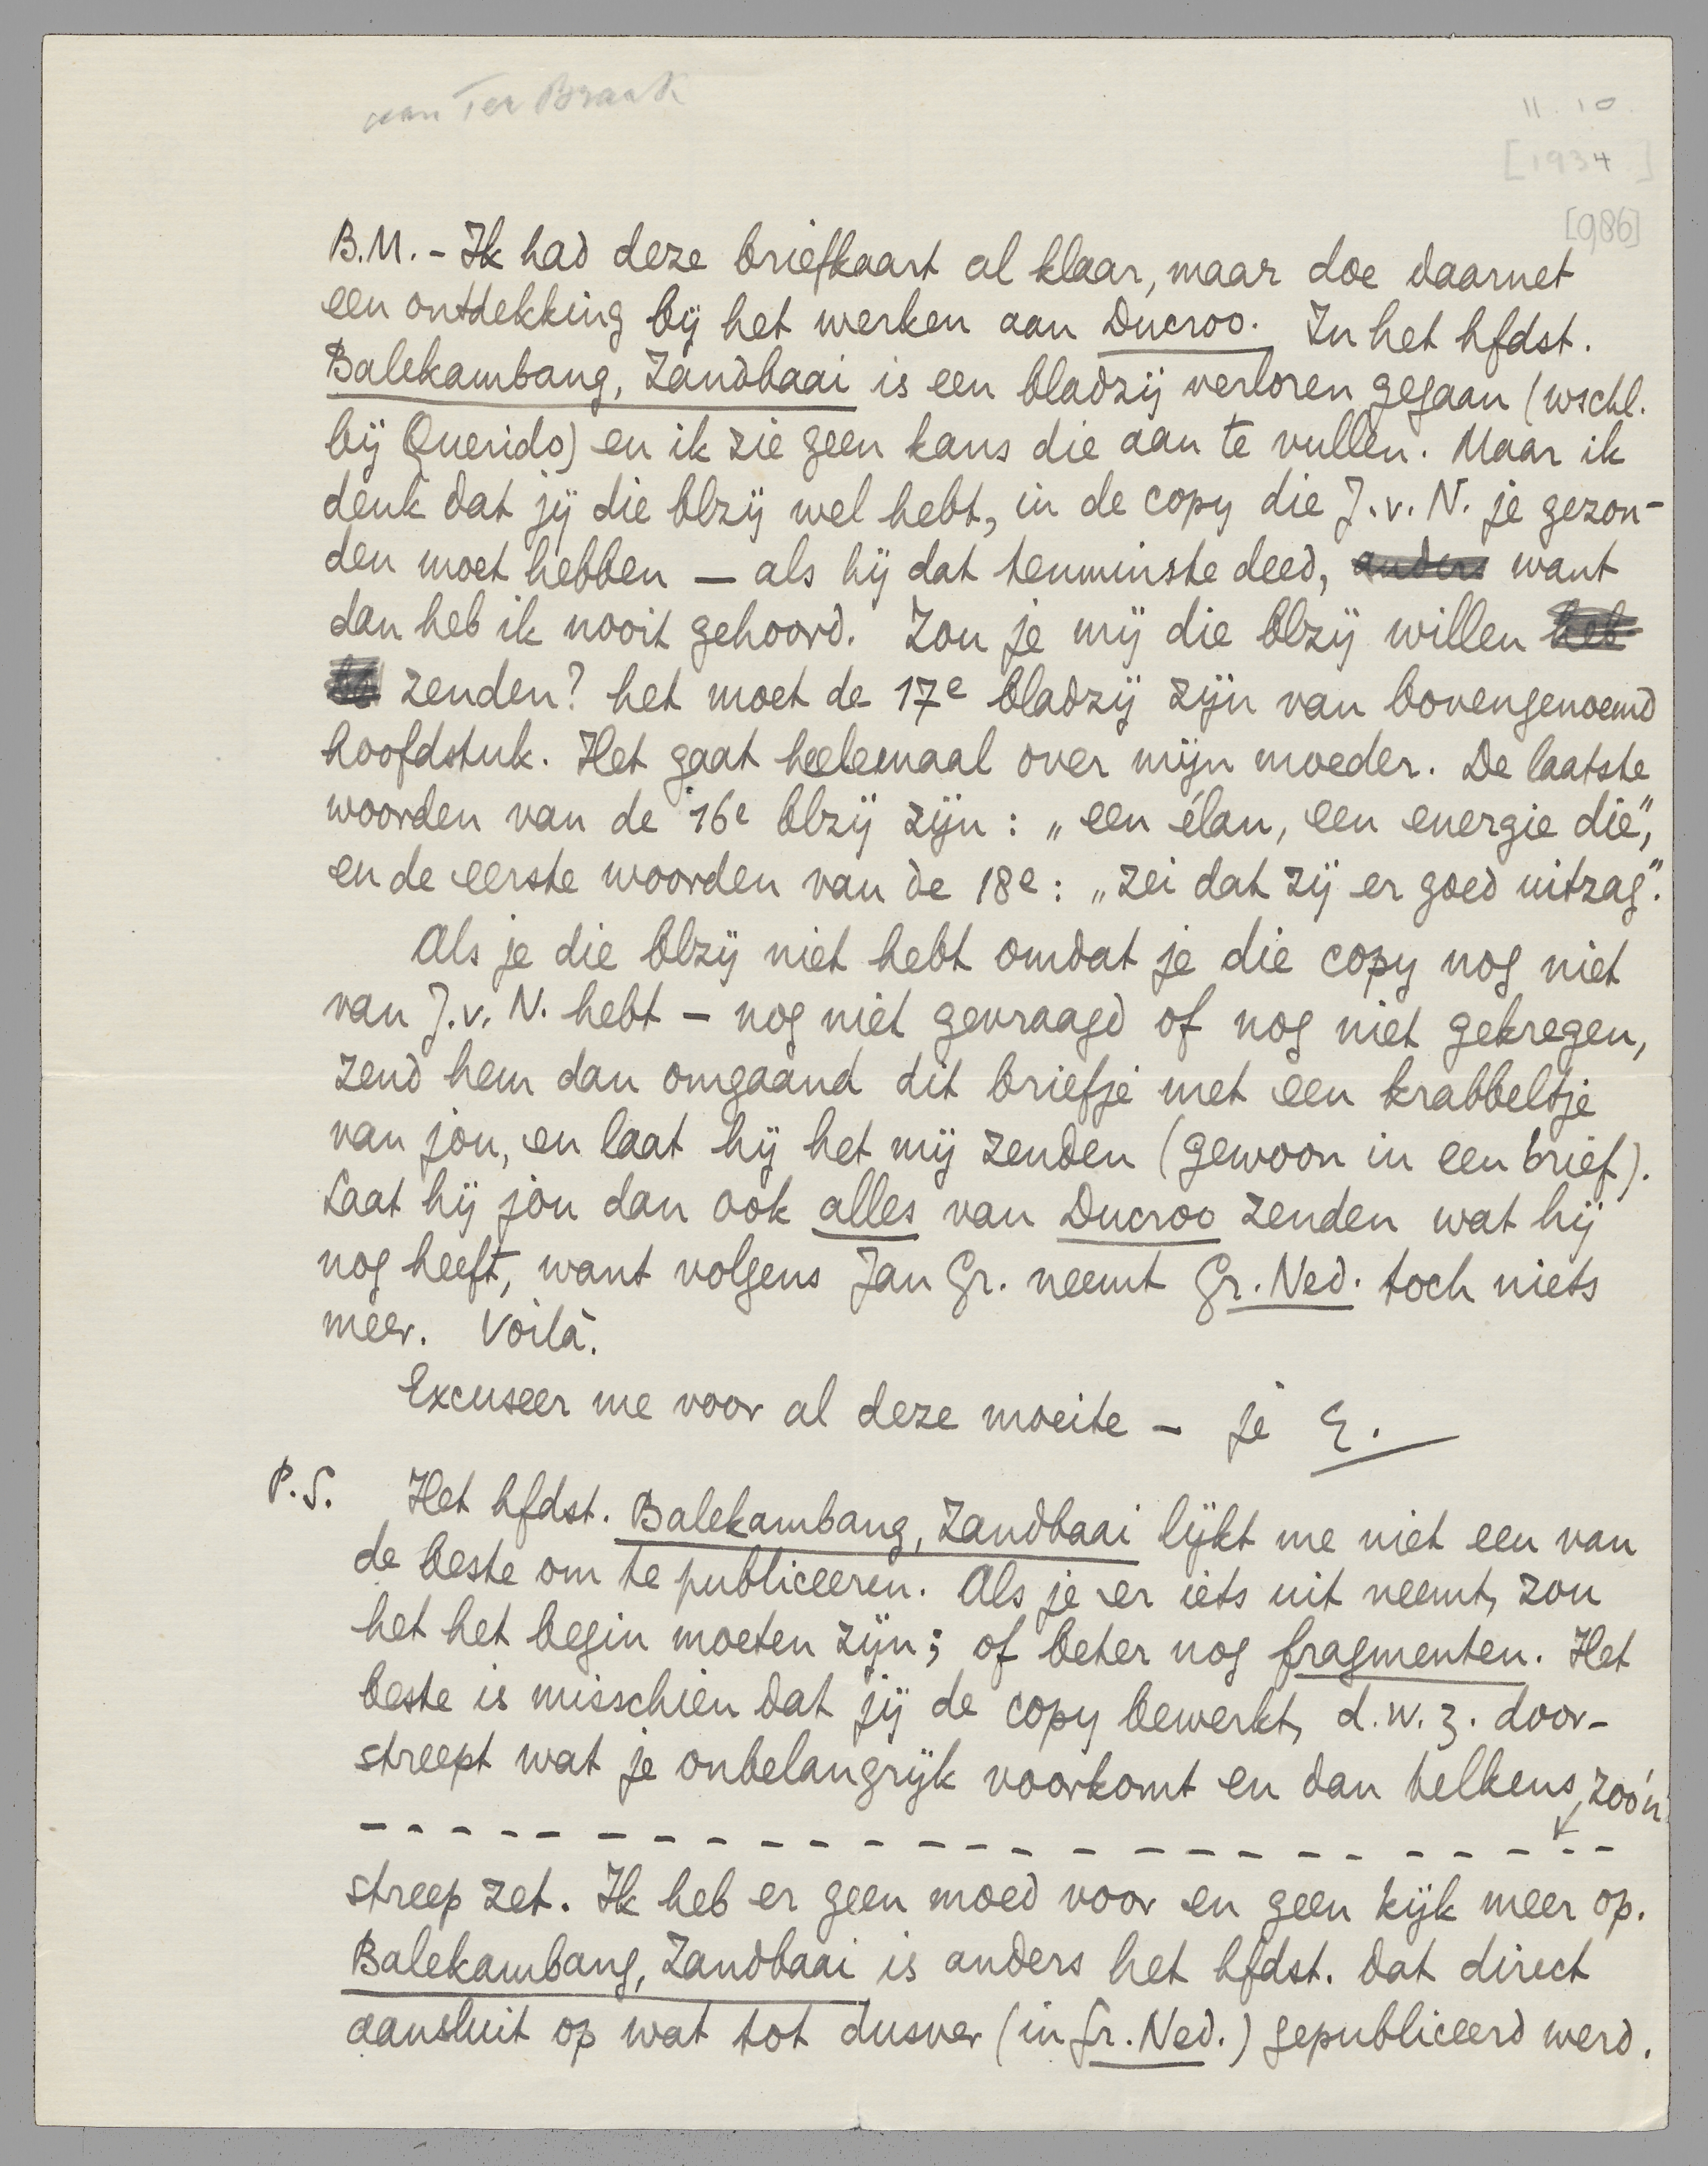 aan Ter Braak
11.10.
[1934]
[986]
B.M. - Ik had deze briefkaart al klaar, maar doe daarnet
een ontdekking bij het werken aan Ducroo. In het hfdst.
Balekambang, Zandbaai is een bladzij verloren gegaan (wschl.
bij Querido) en ik zie geen kans die aan te vullen. Maar ik
denk dat jij die blzij wel hebt, in de copy die J.v.N. je gezon-
den moet hebben — als hij dat tenminste deed, anders want
dan heb ik nooit gehoord. Zou je mij die blzij willen heb-
be zenden? het moet de 17e bladzij zijn van bovengenoemd
hoofdstuk. Het gaat heelemaal over mijn moeder. De laatste
woorden van de 16e blzij zijn: „een élan, een energie die",
en de eerste woorden van de 18e: „zei dat zij er goed uitzag".
Als je die blzij niet hebt omdat je die copy nog niet
van J.v.N. hebt - nog niet gevraagd of nog niet gekregen,
zend hem dan omgaand dit briefje met een krabbeltje
van jou, en laat hij het mij zenden (gewoon in een brief).
Laat hij jou dan ook alles van Ducroo zenden wat hij
nog heeft, want volgens Jan Gr. neemt Gr. Ned. toch niets
meer. Voilà.
Excuseer me voor al deze moeite - je E.
P.S. Het hfdst. Balekambang, Zandbaai lijkt me niet een van
de beste om te publiceeren. Als je er iets uit neemt, zou
het het begin moeten zijn; of beter nog fragmenten. Het
beste is misschien dat jij de copy bewerkt, d.w.z. door-
streept wat je onbelangrijk voorkomt en dan telkens zoo'n
- - - - - - - - - - - - - - - - - - - - - - -
streep zet. Ik heb er geen moed voor en geen kijk meer op.
Balekambang, Zandbaai is anders het hfdst. dat direct
aansluit op wat tot dusver (in Gr. Ned.) gepubliceerd werd.